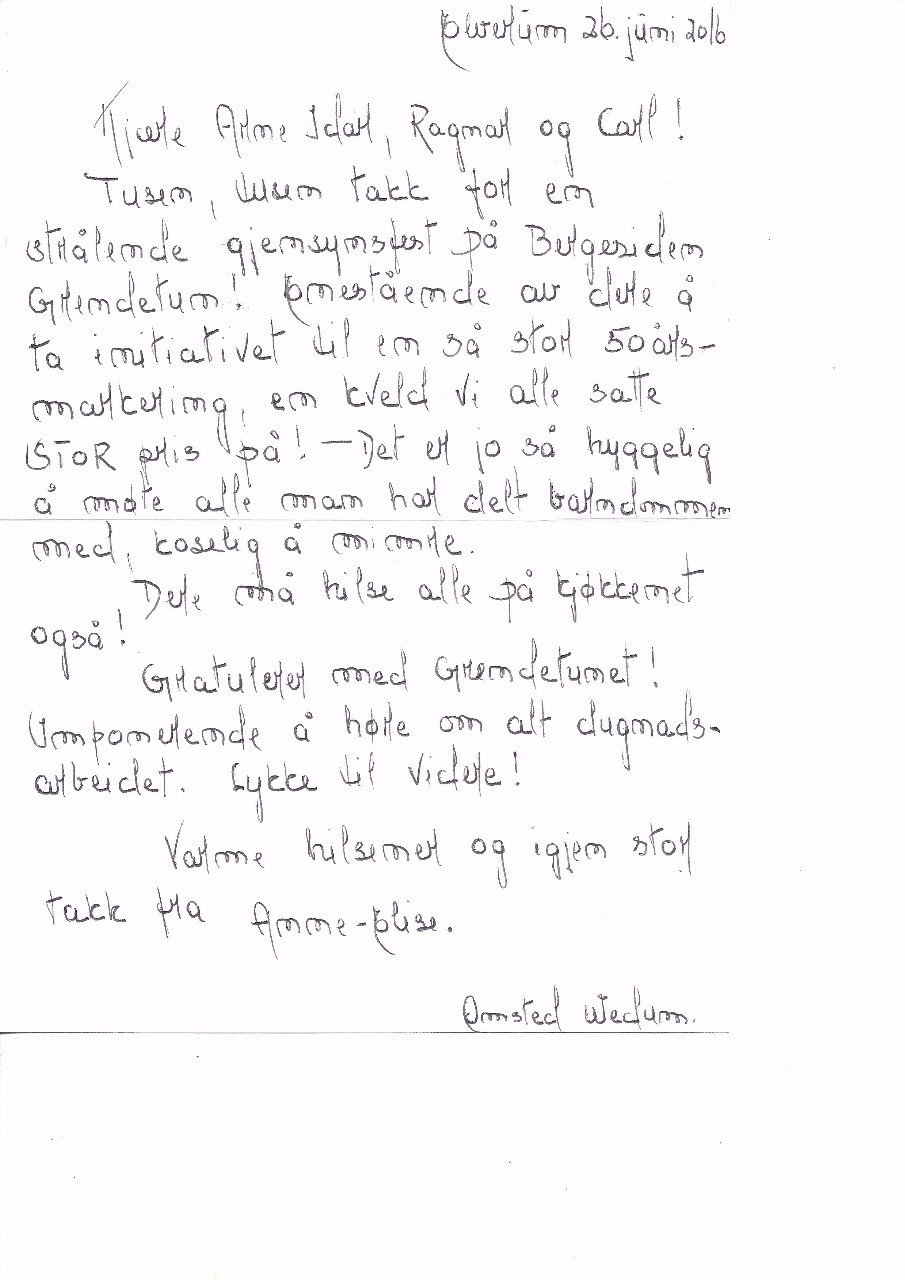 Elverum 26. juni 2016
Kjære Arne Idar, Ragnar og Carl!
Tusen, tusen takk for en
strålende gjensynsfest på Bergesiden
Grendetun! Enestående av dere å
ta initiativet til en så stor 50 års-
markering, en kveld vi alle satte
STOR pris på! — Det er jo så hyggelig
å møte alle man har delt barndommen
med, koselig å mimre.
Dere må hilse alle på kjøkkenet
også!
Gratulerer med Grendetunet!
Imponerende å høre om alt dugnads-
arbeidet. Lykke til videre!
Varme hilsener og igjen stor
takk fra Anne-Elise.
Ømsted Wedum.